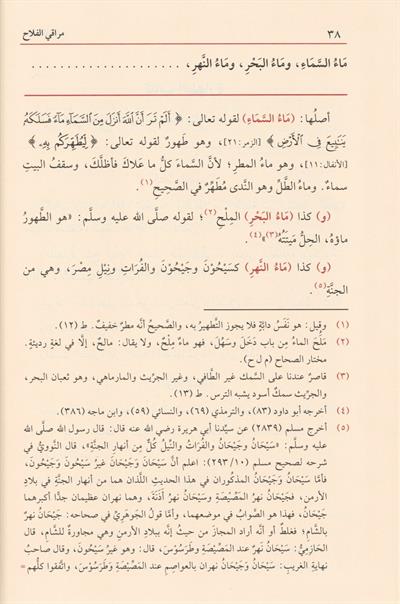 ٣٨
مراقي الفلاح
مَاءُ السَّمَاءِ، ومَاءُ البَحْرِ، ومَاءُ النَّهرِ، . . . . . . . . . . . . . . . . . . . . .
أصلُها: (مَاءُ السَّمَاءِ) لقوله تعالى: ﴿ أَلَمْ تَرَ أَنَّ ٱللَّهَ أَنزَلَ مِنَ ٱلسَّمَآءِ مَآءً فَسَلَكَهُۥ
يَنَٰبِيعَ فِى ٱلْأَرْضِ ﴾ [الزمر: ٢١]، وهو طَهورٌ لقوله تعالى: ﴿ لِّيُطَهِّرَكُم بِهِۦ ﴾
[الأنفال: ١١]، وهو ماءُ المطرِ؛ لأنَّ السَّماءَ كلُّ ما عَلاكَ فأظلَّكَ، وسقفُ البيتِ
سماءٌ. وماءُ الطَّلِّ وهو النَّدى مُطَهِّرٌ في الصَّحيحِ(١).
(و) كذا (مَاءُ البَحْرِ) المِلْحِ(٢)؛ لقوله صلَّى الله عليه وسلَّم: «هو الطَّهورُ
ماؤهُ، الحِلُّ مَيتَتُهُ(٣)»(٤).
(و) كذا (مَاءُ النَّهرِ) كسَيْحُوْنَ وجَيْحُوْنَ والفُرَاتِ ونِيْلِ مِصْرَ، وهي من
الجنَّةِ(٥).
(١) وقيل: هو نَفَسُ دابَّةٍ فلا يجوز التَّطهيرُ به، والصَّحيحُ أنَّه مطرٌ خفيفٌ. ط (١٢).
(٢) مَلَحَ الماءُ مِن باب دَخَلَ وسَهُلَ، فهو ماءٌ مِلْحٌ، ولا يقال: مالحٌ، إلَّا في لغةٍ رديئةٍ.
مختار الصحاح (م ل ح).
(٣) قاصرٌ عندنا على السَّمك غير الطَّافي، وغير الجرِّيث والمارماهي، وهو ثعبان البحر،
والجرِّيث سمكٌ أسود يشبه الترس. ط (١٣).
(٤) أخرجه أبو داود (٨٣)، والترمذي (٦٩)، والنسائي (٥٩)، وابن ماجه (٣٨٦).
(٥) أخرج مسلم (٢٨٣٩) عن سيِّدنا أبي هريرة رضي الله عنه قال: قال رسول الله صلَّى الله
عليه وسلَّم: «سَيْحَانُ وجَيْحَانُ والفُرَاتُ والنِّيْلُ كُلٌّ مِن أنهارِ الجنَّةِ»، قال النَّوويُّ في
شرحه لصحيح مسلم (١٠/ ٢٩٣): اعلم أنَّ سَيْحَانَ وجَيْحَانَ غيرُ سَيْحُونَ وجَيْحُونَ،
فأمَّا سَيْحَانُ وجَيْحَانُ المذكوران في هذا الحديثِ اللَّذان هما من أنهار الجنَّةِ في بلادِ
الأرمن، فجَيْحَانُ نهرُ المَصِّيْصَةِ وسَيْحَانُ نهرُ أَذَنَةَ، وهما نهران عظيمان جدًّا أكبرهما
جَيْحَانُ، فهذا هو الصَّوابُ في موضعهما، وأمَّا قولُ الجَوْهَريِّ في صحاحه: جَيْحَانُ نهرٌ
بالشَّامِ؛ فغلطٌ أو أنَّه أراد المجازَ من حيثُ إنَّه ببلادِ الأرمنِ وهي مجاورةٌ للشَّام، قال
الحَازِميُّ: سَيْحَانُ نهرٌ عند المَصِّيْصَةِ وطَرَسُوْسَ، قال: وهو غير سَيْحُونَ، وقال صاحبُ
نهايةِ الغريبِ: سَيْحَانُ وجَيْحَانُ نهران بالعواصمِ عند المَصِّيْصَةِ وطَرَسُوْسَ، واتَّفقوا كلُّهم =